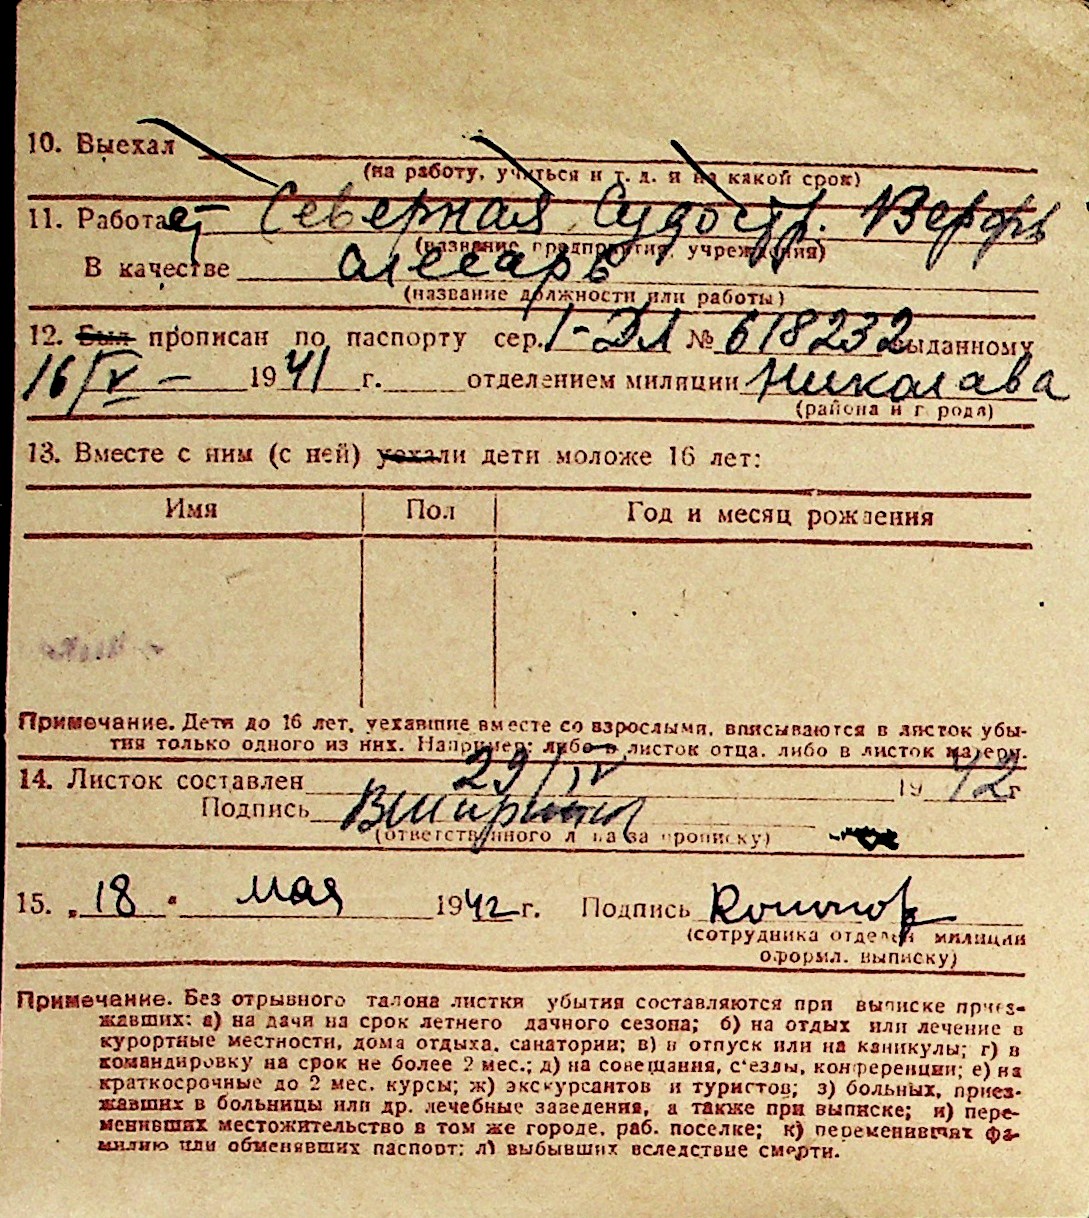 10. Выехал
(на работу, учиться и т. д. и на какой срок)
11. Работает Северная Судостр. Верфь
(название предприятия, учреждения)
В качестве слесарь
(название должности или работы)
12. Был прописан по паспорту сер. I-ДЛ № 618232 выданному
16/IV – 1941 г. отделением милиции Николаева
(района и города)
13. Вместе с ним (с ней) уехали дети моложе 16 лет:
Имя Пол Год и месяц рождения
Примечание. Дети до 16 лет, уехавшие вместе со взрослыми, вписываются в листок убы-
тия только одного из них. Например: либо в листок отца, либо в листок матери.
14. Листок составлен 29/IV 1942 г
Подпись
(ответственного лица за прописку)
15. „18" мая 1942 г. Подпись
(сотрудника отделен милиции
оформл. выписку)
Примечание. Без отрывного талона листки убытия составляются при выписке приез-
жавших: а) на дачи на срок летнего дачного сезона; б) на отдых или лечение в
курортные местности, дома отдыха, санатории; в) в отпуск или на каникулы; г) в
командировку на срок не более 2 мес.; д) на совещания, с'езды, конференции; е) на
краткосрочные до 2 мес. курсы; ж) экскурсантов и туристов; з) больных, приез-
жавших в больницы или др. лечебные заведения, а также при выписке; и) пере-
менивших местожительство в том же городе, раб. поселке; к) переменивших фа-
милию или обменявших паспорт; л) выбывших вследствие смерти.